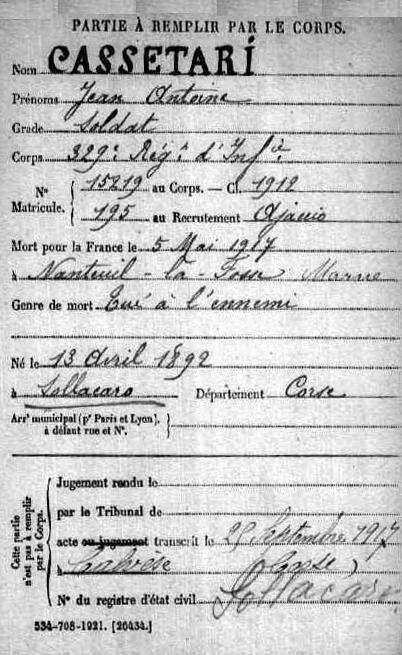 PARTIE À REMPLIR PAR LE CORPS.
Nom CASSETARI
Prénoms Jean Antoine
Grade Soldat
Corps 329e Régt d'Infie
No Matricule. { 15219 au Corps. — Cl. 1912
195 au Recrutement Ajaccio
Mort pour la France le 5 Mai 1917
à Nanteuil-la-Fosse Marne
Genre de mort Tué à l'ennemi
Né le 13 Avril 1892
à Sollacaro Département Corse
Arrt municipal (pr Paris et Lyon), à défaut rue et No. }
Cette partie n'est pas à remplir par le Corps.
Jugement rendu le
par le Tribunal de
acte ou jugement transcrit le Septembre 1917
à Calvèse (Corse)
No du registre d'état civil Sollacaro
534-708-1921. [26434.]